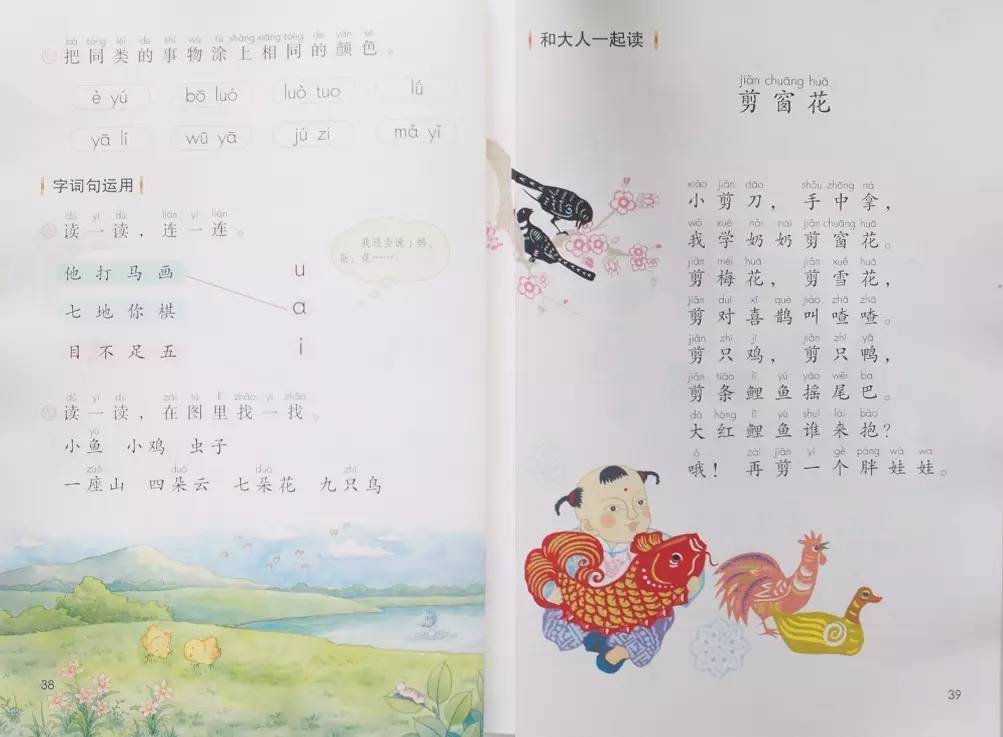 bǎ tóng lèi de shì wù tú shàng xiāng tóng de yán sè
把同类的事物涂上相同的颜色。
è yú bō luó luò tuo lǘ
yā lí wū yā jú zi mǎ yǐ
字词句运用
dú yi dú lián yi lián
读一读，连一连。
我还会说：妈、
爸、花……
他打马画 u
七地你棋 ɑ
目不足五 i
dú yi dú zài tú lǐ zhǎo yi zhǎo
读一读，在图里找一找。
yú
小鱼 小鸡 虫子
zuò duǒ duǒ zhī
一座山 四朵云 七朵花 九只鸟
38
和大人一起读
jiǎn chuāng huā
剪窗花
xiǎo jiǎn dāo shǒu zhōng ná
小剪刀，手中拿，
wǒ xué nǎi nai jiǎn chuāng huā
我学奶奶剪窗花。
jiǎn méi huā jiǎn xuě huā
剪梅花，剪雪花，
jiǎn duì xǐ què jiào zhā zhā
剪对喜鹊叫喳喳。
jiǎn zhī jī jiǎn zhī yā
剪只鸡，剪只鸭，
jiǎn tiáo lǐ yú yáo wěi ba
剪条鲤鱼摇尾巴。
dà hóng lǐ yú shuí lái bào
大红鲤鱼谁来抱？
ò zài jiǎn yí gè pàng wá wa
哦！再剪一个胖娃娃。
39